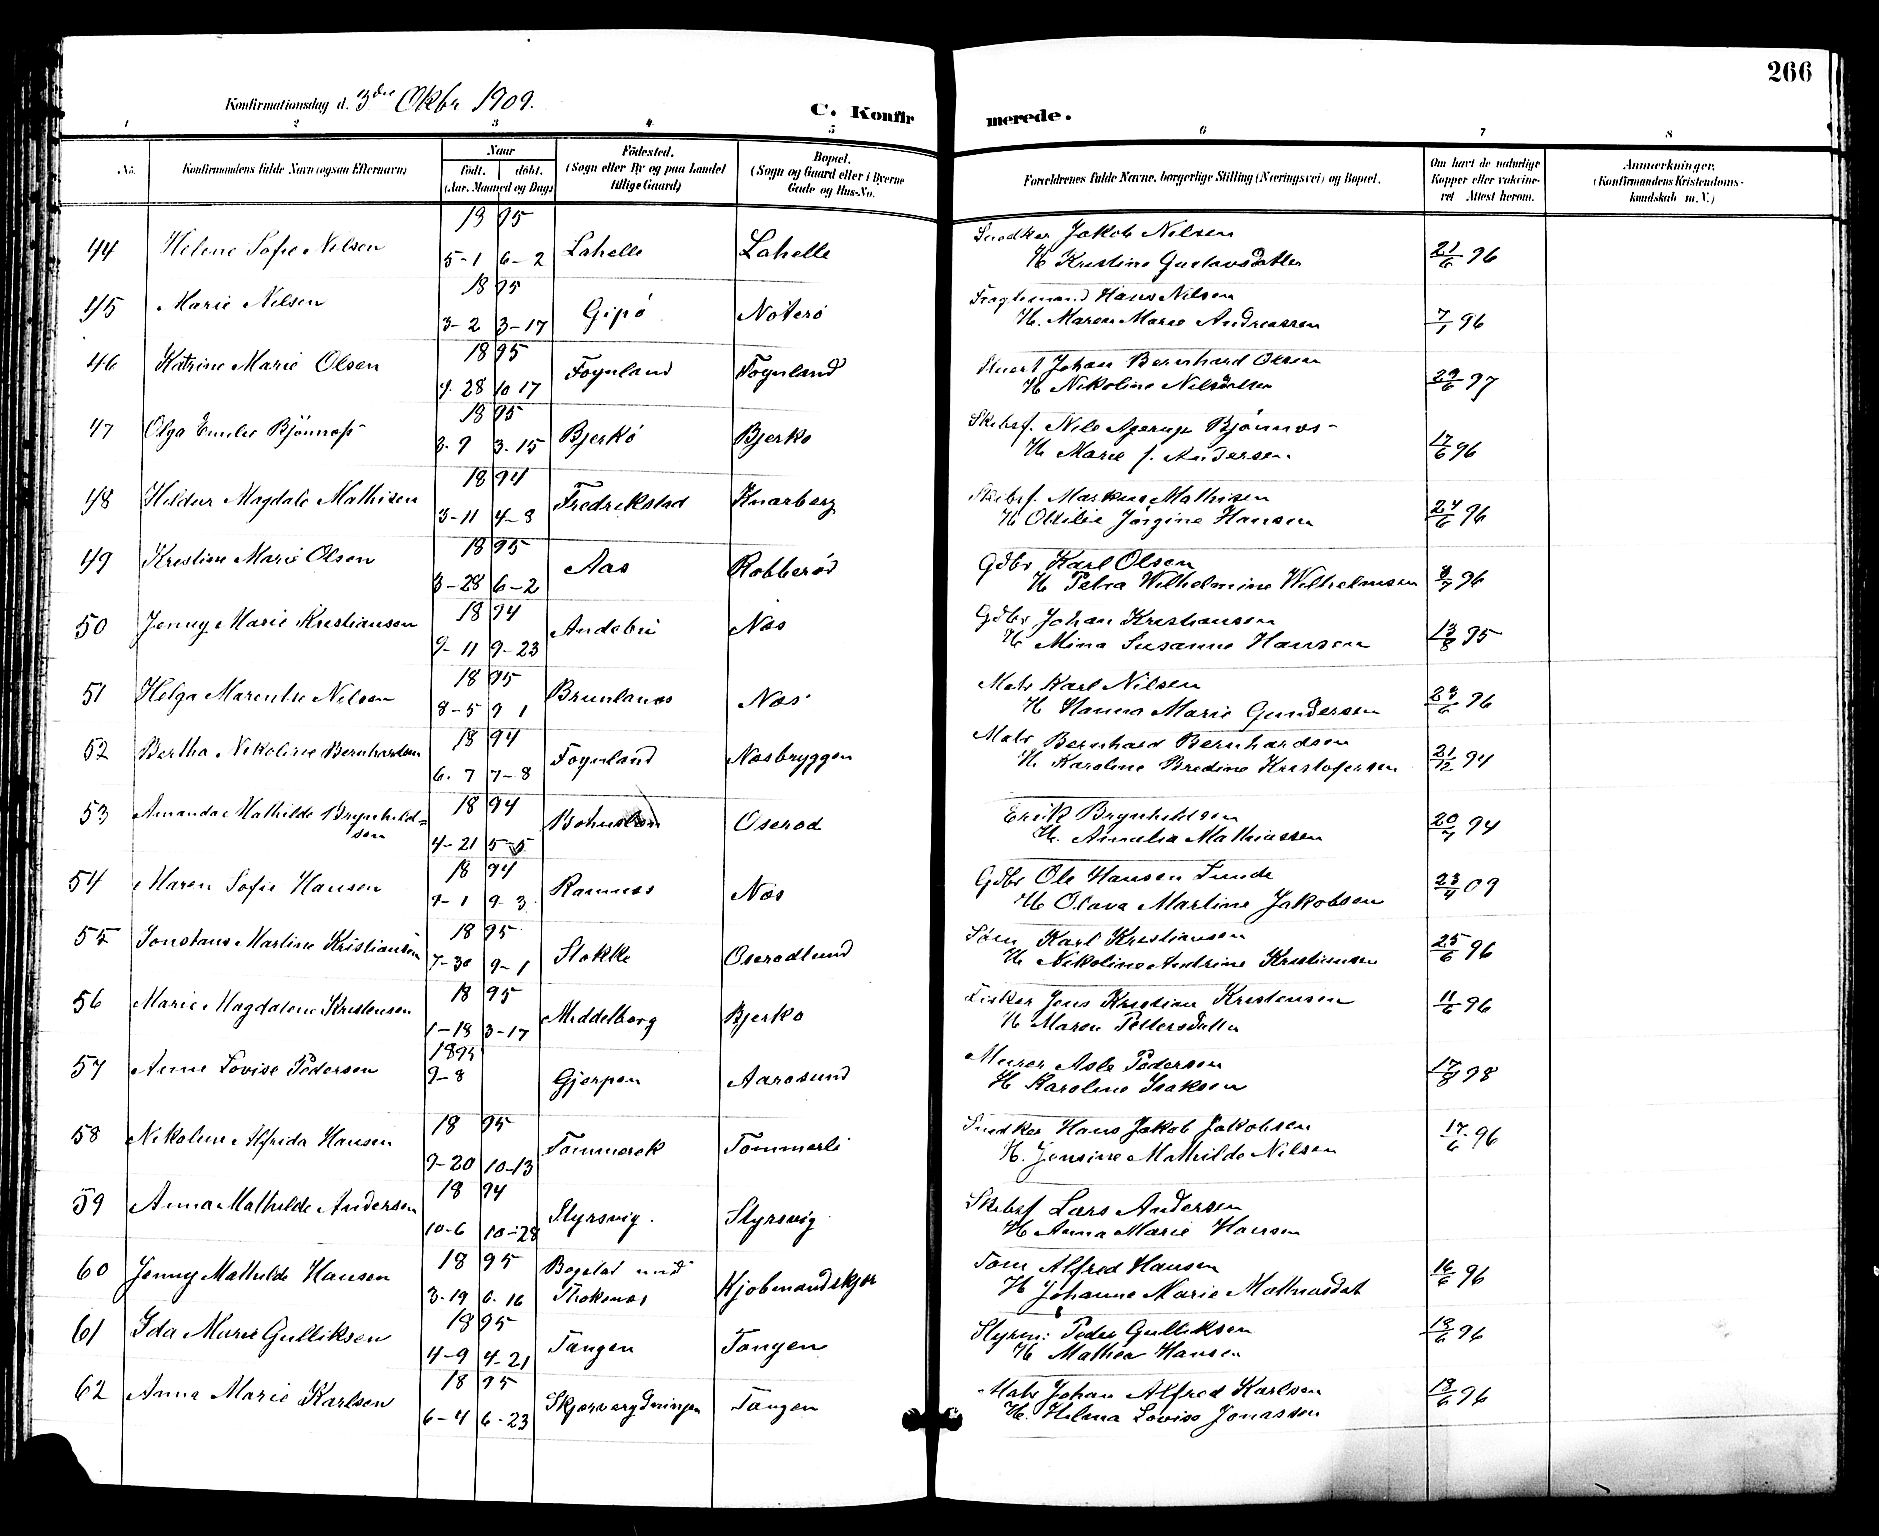 266
Konfirmationsdag d. 3die Oktbr 1909.
C. Konfir merede.
1 2 3 4 5 6 7 8
No.
Konfirmandens fulde Navn (ogsaa Efternavn)
Naar
født. døbt.
(Aar, Maaned og Dag)
Fødested.
(Sogn eller By og paa Landet
tillige Gaard)
Bopæl.
(Sogn og Gaard eller i Byerne
Gade og Hus-No.
Forældrenes fulde Navne, borgerlige Stilling (Næringsvei) og Bopæl.
Om havt de naturlige
Kopper eller vakcine-
ret Attest herom.
Anmærkninger,
(Konfirmandens Kristendoms-
kundskab m. V.)
44 Helene Sofie Nilsen 1895 5-1 6-2 Lahelle Lahelle Snedker Jakob Nilsen
H Kristine Gustavsdatter 21/6 96
45 Marie Nilsen 1895 3-2 3-17 Gipø Nøterø Fragtemand Hans Nilsen
H. Maren Marie Andreassen 7/1 96
46 Katrine Marie Olsen 1895 9-28 10 17 Føynland Føynland Stuert Johan Bernhard Olsen
H Nikoline Nilsdatter 29/6 97
47 Olga Emilie Bjönnes 1895 2-9 3-15 Bjerkö Bjerkø Skibsf. Nils Agerup Bjønnes
H Marie f. Andersen 17/6 96
48 Hildur Magdale Mathisen 1894 3-11 4-8 Fredrikstad Knarberg Skibsf. Markus Mathisen
H Ottilie Jørgine Hansen 24/6 96
49 Kristine Marie Olsen 1895 3-28 6-2 Aas Robberød Gdbr Karl Olsen
H Petra Wilhelmine Wilhelmsen 8/7 96
50 Jenny Marie Kristiansen 1894 9-11 9-23 Andebu Næs Gdbr Johan Kristiansen
H Mina Susanne Hansen 13/8 95
51 Helga Marentse Nilsen 1895 8-5 9 1 Brunlanæs Næs Matr Karl Nilsen
H Hanna Marie Gundersen 29/6 96
52 Bertha Nikoline Bernhardsen 1894 6-7 7-8 Føynland Næsbryggen Matr Bernhard Bernhardsen
H. Karoline Bredine Kristofersen 21/12 94
53 Amanda Mathilde Brynhild=
sen 1894 4-21 5-5 Bohuslæn Oserød Erik Brynhildsen
H. Amalia Mathiassen 20/7 94
54 Maren Sofie Hansen 1894 9-1 9-3 Ramnæs Næs Gdbr Ole Hansen Funde
H Olava Martine Jakobsen 23/4 09
55 Constans Martine Kristiansen 1895 7-30 9-1 Stokke Oserødlund Søm Karl Kristiansen
H Nikoline Andrine Kristiansen 25/6 96
56 Marie Magdalene Kristensen 1895 1-18 3-17 Middelborg Bjerkø Fisker Jens Kristian Kristensen
H Maren Pettersdatter 11/6 96
57 Anne Lovise Pedersen 1895 9-8 Gjerpen Aarøsund Murer Asle Pedersen
H Karoline Isaksen 17/8 98
58 Nikoline Alfrida Hansen 1895 9-20 10-13 Tømmerek Tømmerli Snedker Hans Jakob Jakobsen
H. Jensine Mathilde Nilsen 17/6 96
59 Anna Mathilde Andersen 1894 10-6 10-28 Styrsvig. Styrsvig Skibsf Lars Andersen
H Anna Marie Hansen
60 Jenny Mathilde Hansen 1895 3-19 6-16 Bogstad und
Throknes Kjøbmandskjær Tøm Alfred Hansen
H Johanne Marie Mathiasdat 16/6 96
61 Ida Marie Gulliksen 1895 4-9 4-21 Tangen Tangen Styrm: Peder Gulliksen
H Mathea Hansen 18/6 96
62 Anna Marie Karlsen 1895 6-4 6-23 Tangen Matr Johan Alfred Karlsen
H. Helena Lovise Jonassen 18/6 96